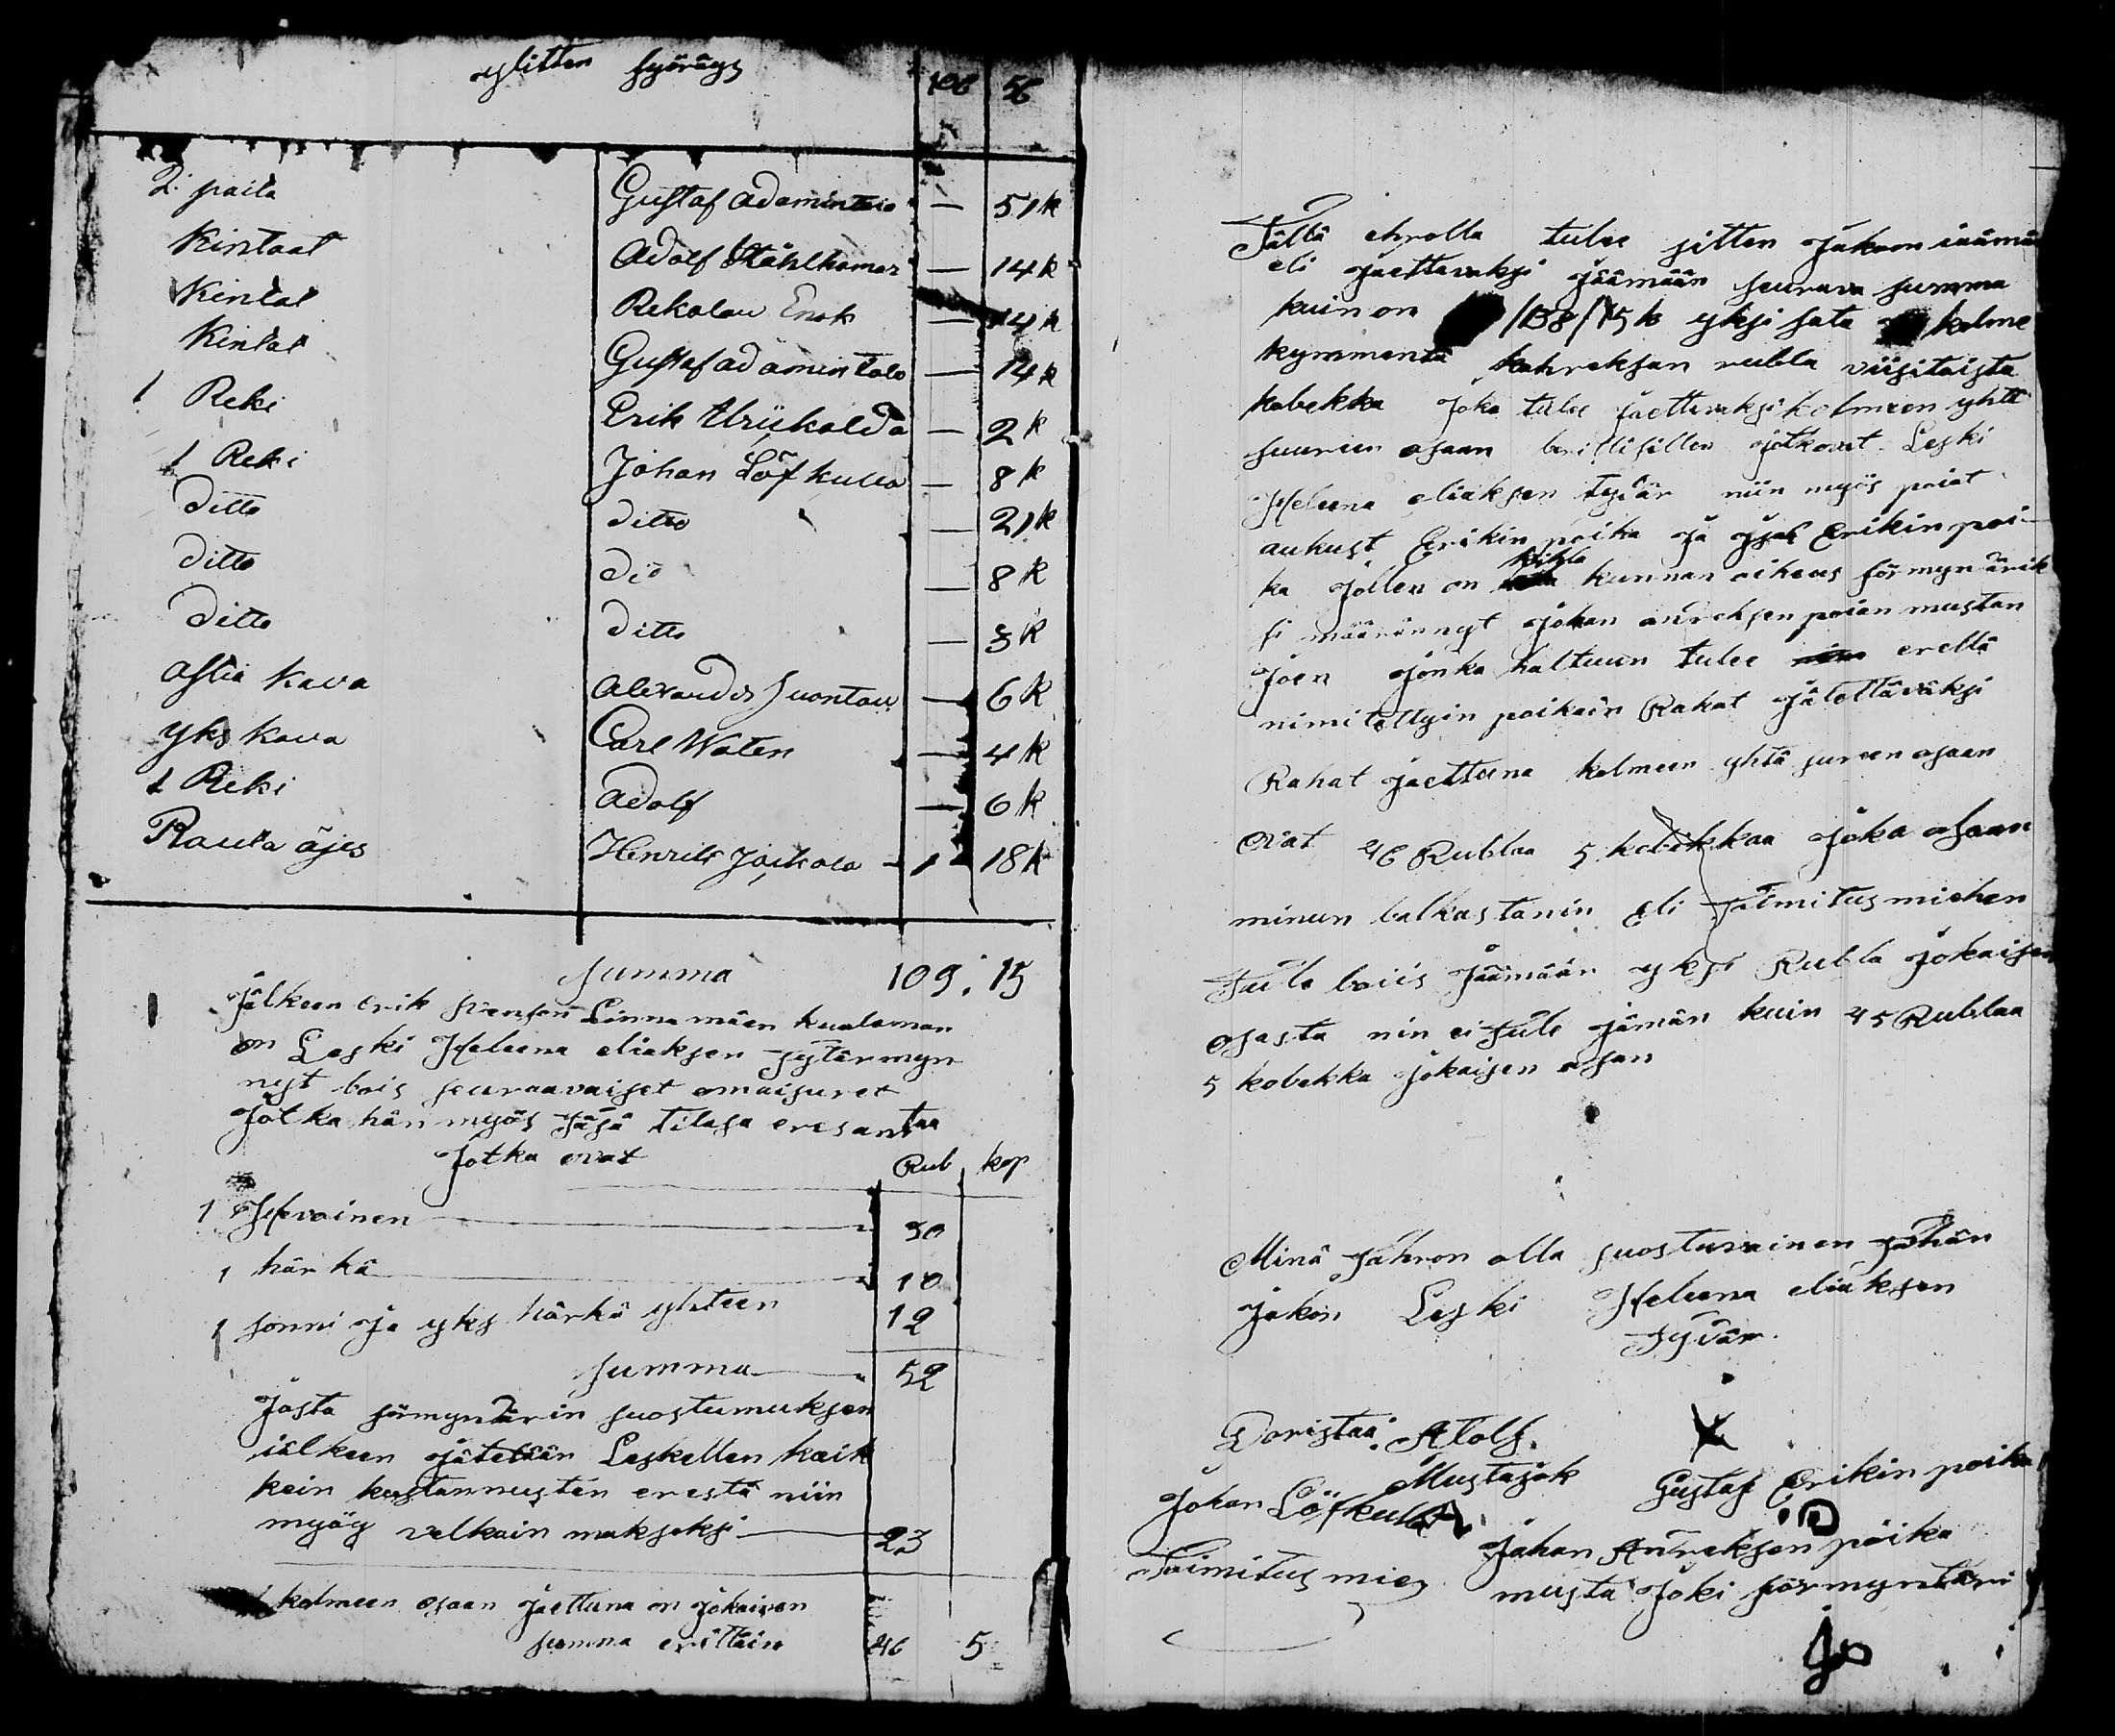 ylitten syöräys 106 56
2 paita Gustaf adamintalo — 51 k
Kintaat Adolf Ståhlhamar — 14 k
Kintat Rekolan Enok — 14 k
Kintat Gustaf adamintalo — 14 k
1 Reki Erik — 2 k
1 Reki Johan Löfkulla — 8 k
ditto ditto — 21 k
ditto dio — 8 k
ditto ditto — 3 k
astia kava Alexander Suontau — 6 k
yks kava Carl Waten — 4 k
1 Reki Adolf — 6 k
Rauta äjes Henrik Jaikola 1 18 k
Summa 109. 15
Jälkeen Erik Svensson Linnamäen kualeman
on Leski Heleena eliaksen tytär myn
nyt bois seuraavaiset omaisuret
Jotka hän myös täsä tilasa eresantaa
Jotka ovat Rub kop
1 Hevoinen 30
1 härkä 10
1 sonni Ja yks härkä yhteen 12
Summa 52
Josta förmyndärin suostumuksen
iälkeen jätetään Leskellen kaik
kein kustannusten erestä niin
myös velkain maksoksi 23
kolmeen osaan Jaettuna on Jokainen
summa erittäin 46 5
Tällä ehrolla tulee sitten Jakoon iäämän
eli Jaettavaksi Jäämään seurava summa
kuin on /138/15 k yksi sata kolme
kymmentä kahreksan rubla viisitoista
kobekka Joka tulee Jaettavaksi kolmeen yhtä
suureen osaan berillisillen Jotkovat Leski
Heleena eliaksen tytär niin myös poiat
aukust Erikin poika Ja Isak Erikin poi
ka Jollen on kihla kunnan oikeus förmyndärik
si määrännyt Johan andreksen poian mustan
Joen Jonka haltuun tulee erellä
nimitettyin poikain Rahat Jätettäväksi
Rahat Jaettuna kolmeen yhtä sureen osaan
ovat 46 Rublaa 5 kobekkaa Joka osaan
minun balkastanin eli toimitus miehen
tule bois Jäämään yksi Rubla Jokaisen
osasta nin ei tule Jämän kuin 45 Rublaa
5 kobekka Jokaisen osan
Minä tahron olla suosturainen tähän
Jakon Leski Heleena eliaksen
tytär
Doristaa Atolf
Mustajok Gustaf Erikin poika
Johan Löfkulla
Johan Andreksen poika
Toimitus mies musta Joki förmyntäri